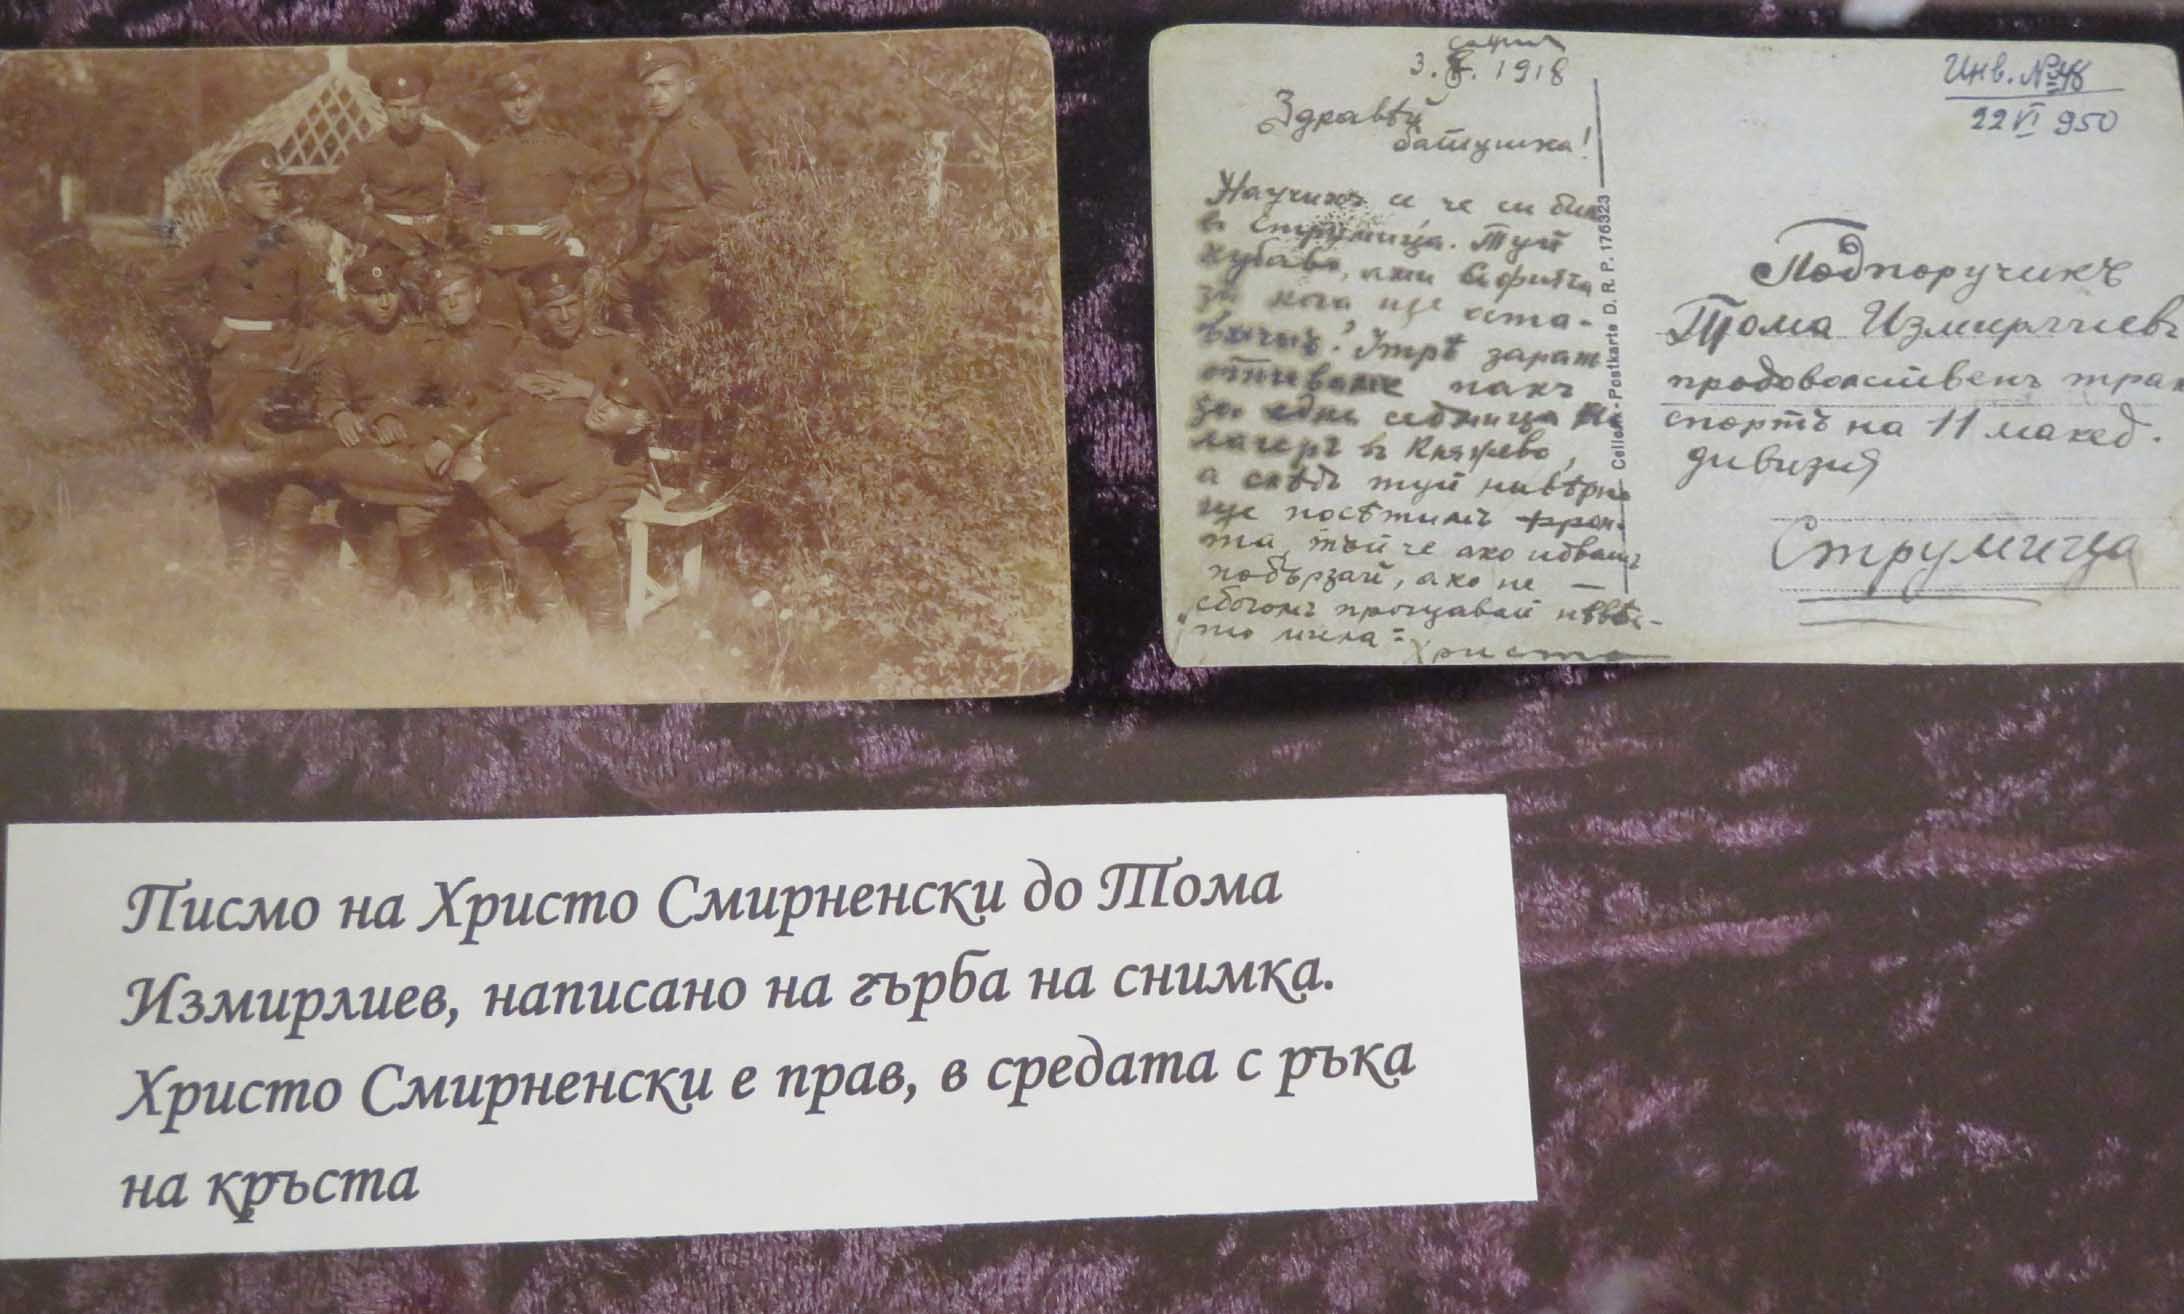 София
3. . 1918
Здравѣй
батушка!
Научихъ се че си бил
въ Струмица. Туй
хубаво, ами
за кога ще оста-
Утрѣ заран
отиваме пакъ
за една седмица на
лагеръ въ Княжево,
а слѣдъ туй навѣрно
ще посѣтимъ фрон-
та, тъй че ако идвашъ
побързай, ако не —
сбогомъ прощавай
мила =
Христо
Cellem-Postkarte D. R. P. 176323
Инв. №
22 VI 950
Подпоручикъ
Тома Измирлиевъ
продоволственъ тран
спортъ на 11 макед.
дивизия
Струмица
Писмо на Христо Смирненски до Тома
Измирлиев, написано на гърба на снимка.
Христо Смирненски е прав, в средата с ръка
на кръста